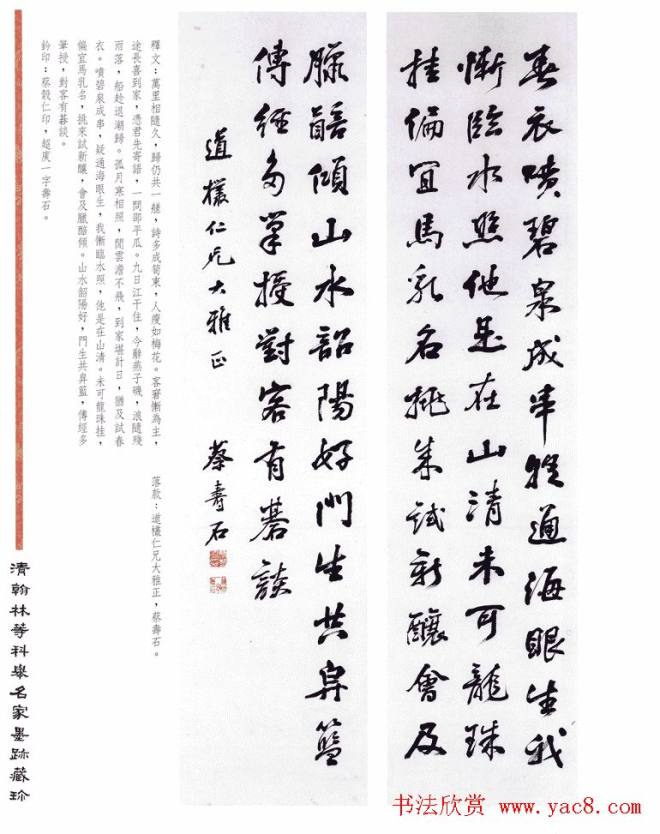 春衣噴碧泉成串疑通海眼生我
慚臨水照他是在山清未可龍珠
挂偏宜馬乳名挑來試新釀會及
臘醅傾山水韶陽好門生共舁籃
傳經多筆授對客有碁談
道欉仁兄大雅正
蔡壽石
釋文:萬里相隨久,歸仍共一艖,詩多成筍束,人瘦如梅花。客窘慚為主,
途長喜到家,憑君先寄語,一問邵平瓜。九日江干住,今辭燕子磯,浪隨殘
雨落,船趁退潮歸。孤月寒相照,閒雲澹不飛,到家堪計日,猶及試春
衣。噴碧泉成串,疑通海眼生,我慚臨水照,他是在山清。未可龍珠挂,
偏宜馬乳名,挑來試新釀,會及臘醅傾。山水韶陽好,門生共舁籃,傳經多
筆授,對客有碁談。
鈐印:蔡毅仁印,超庚一字壽石。
落款:道欉仁兄大雅正,蔡壽石。
清翰林等科舉名家墨跡藏珍
书法欣赏 www.yac8.com